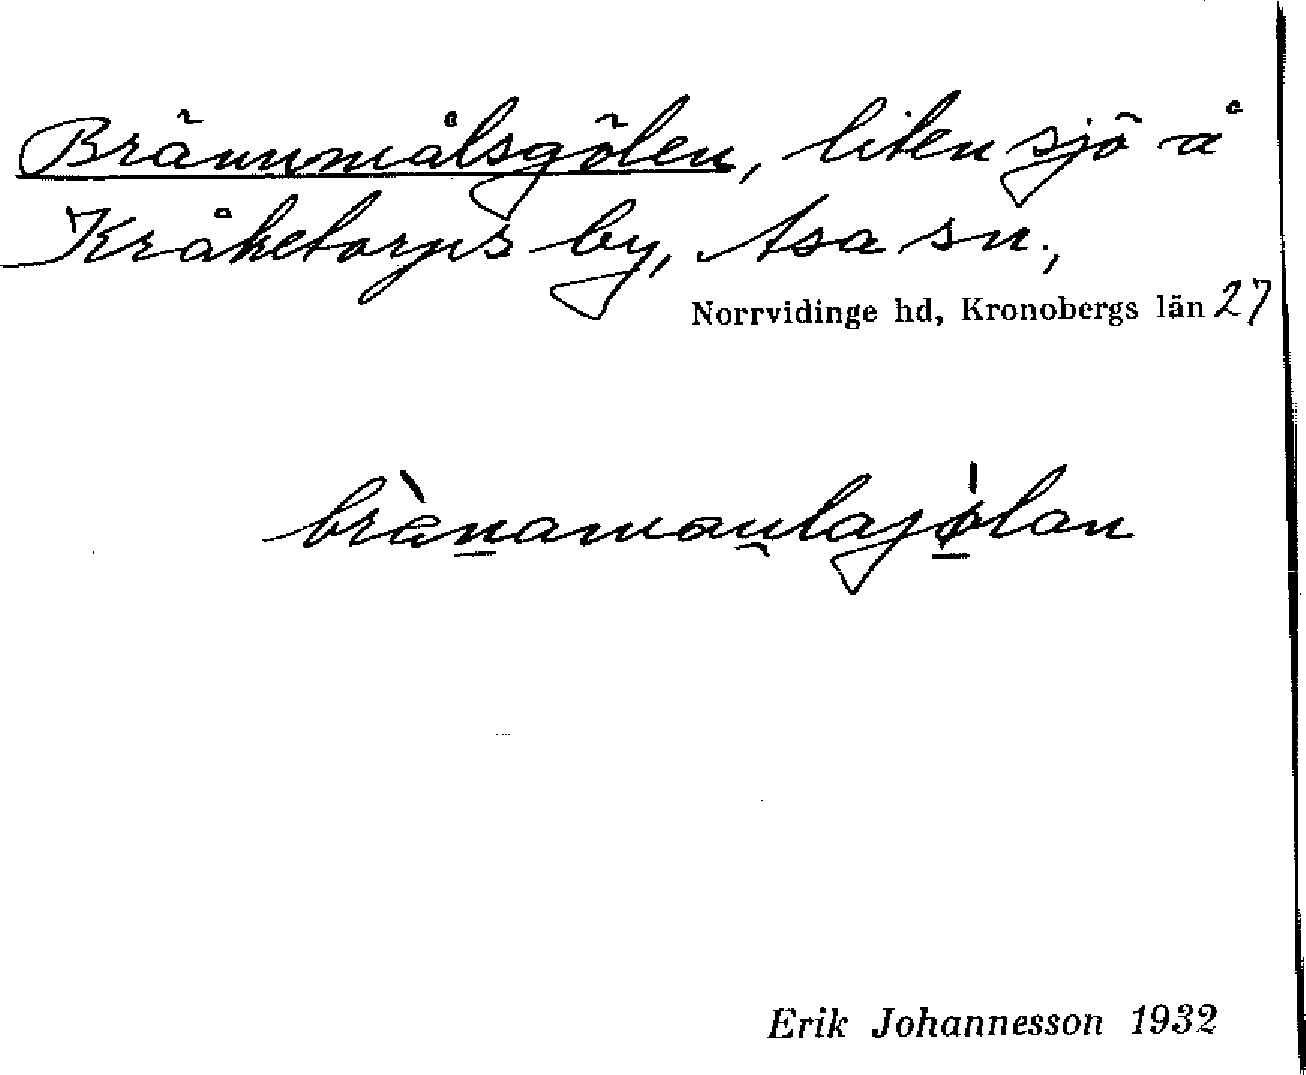 Brännmålsgölen, liten sjö å
Kråketorps by, Asa sn.,
Norrvidinge hd, Kronobergs län 27
brànamaulajølan
Erik Johannesson 1932